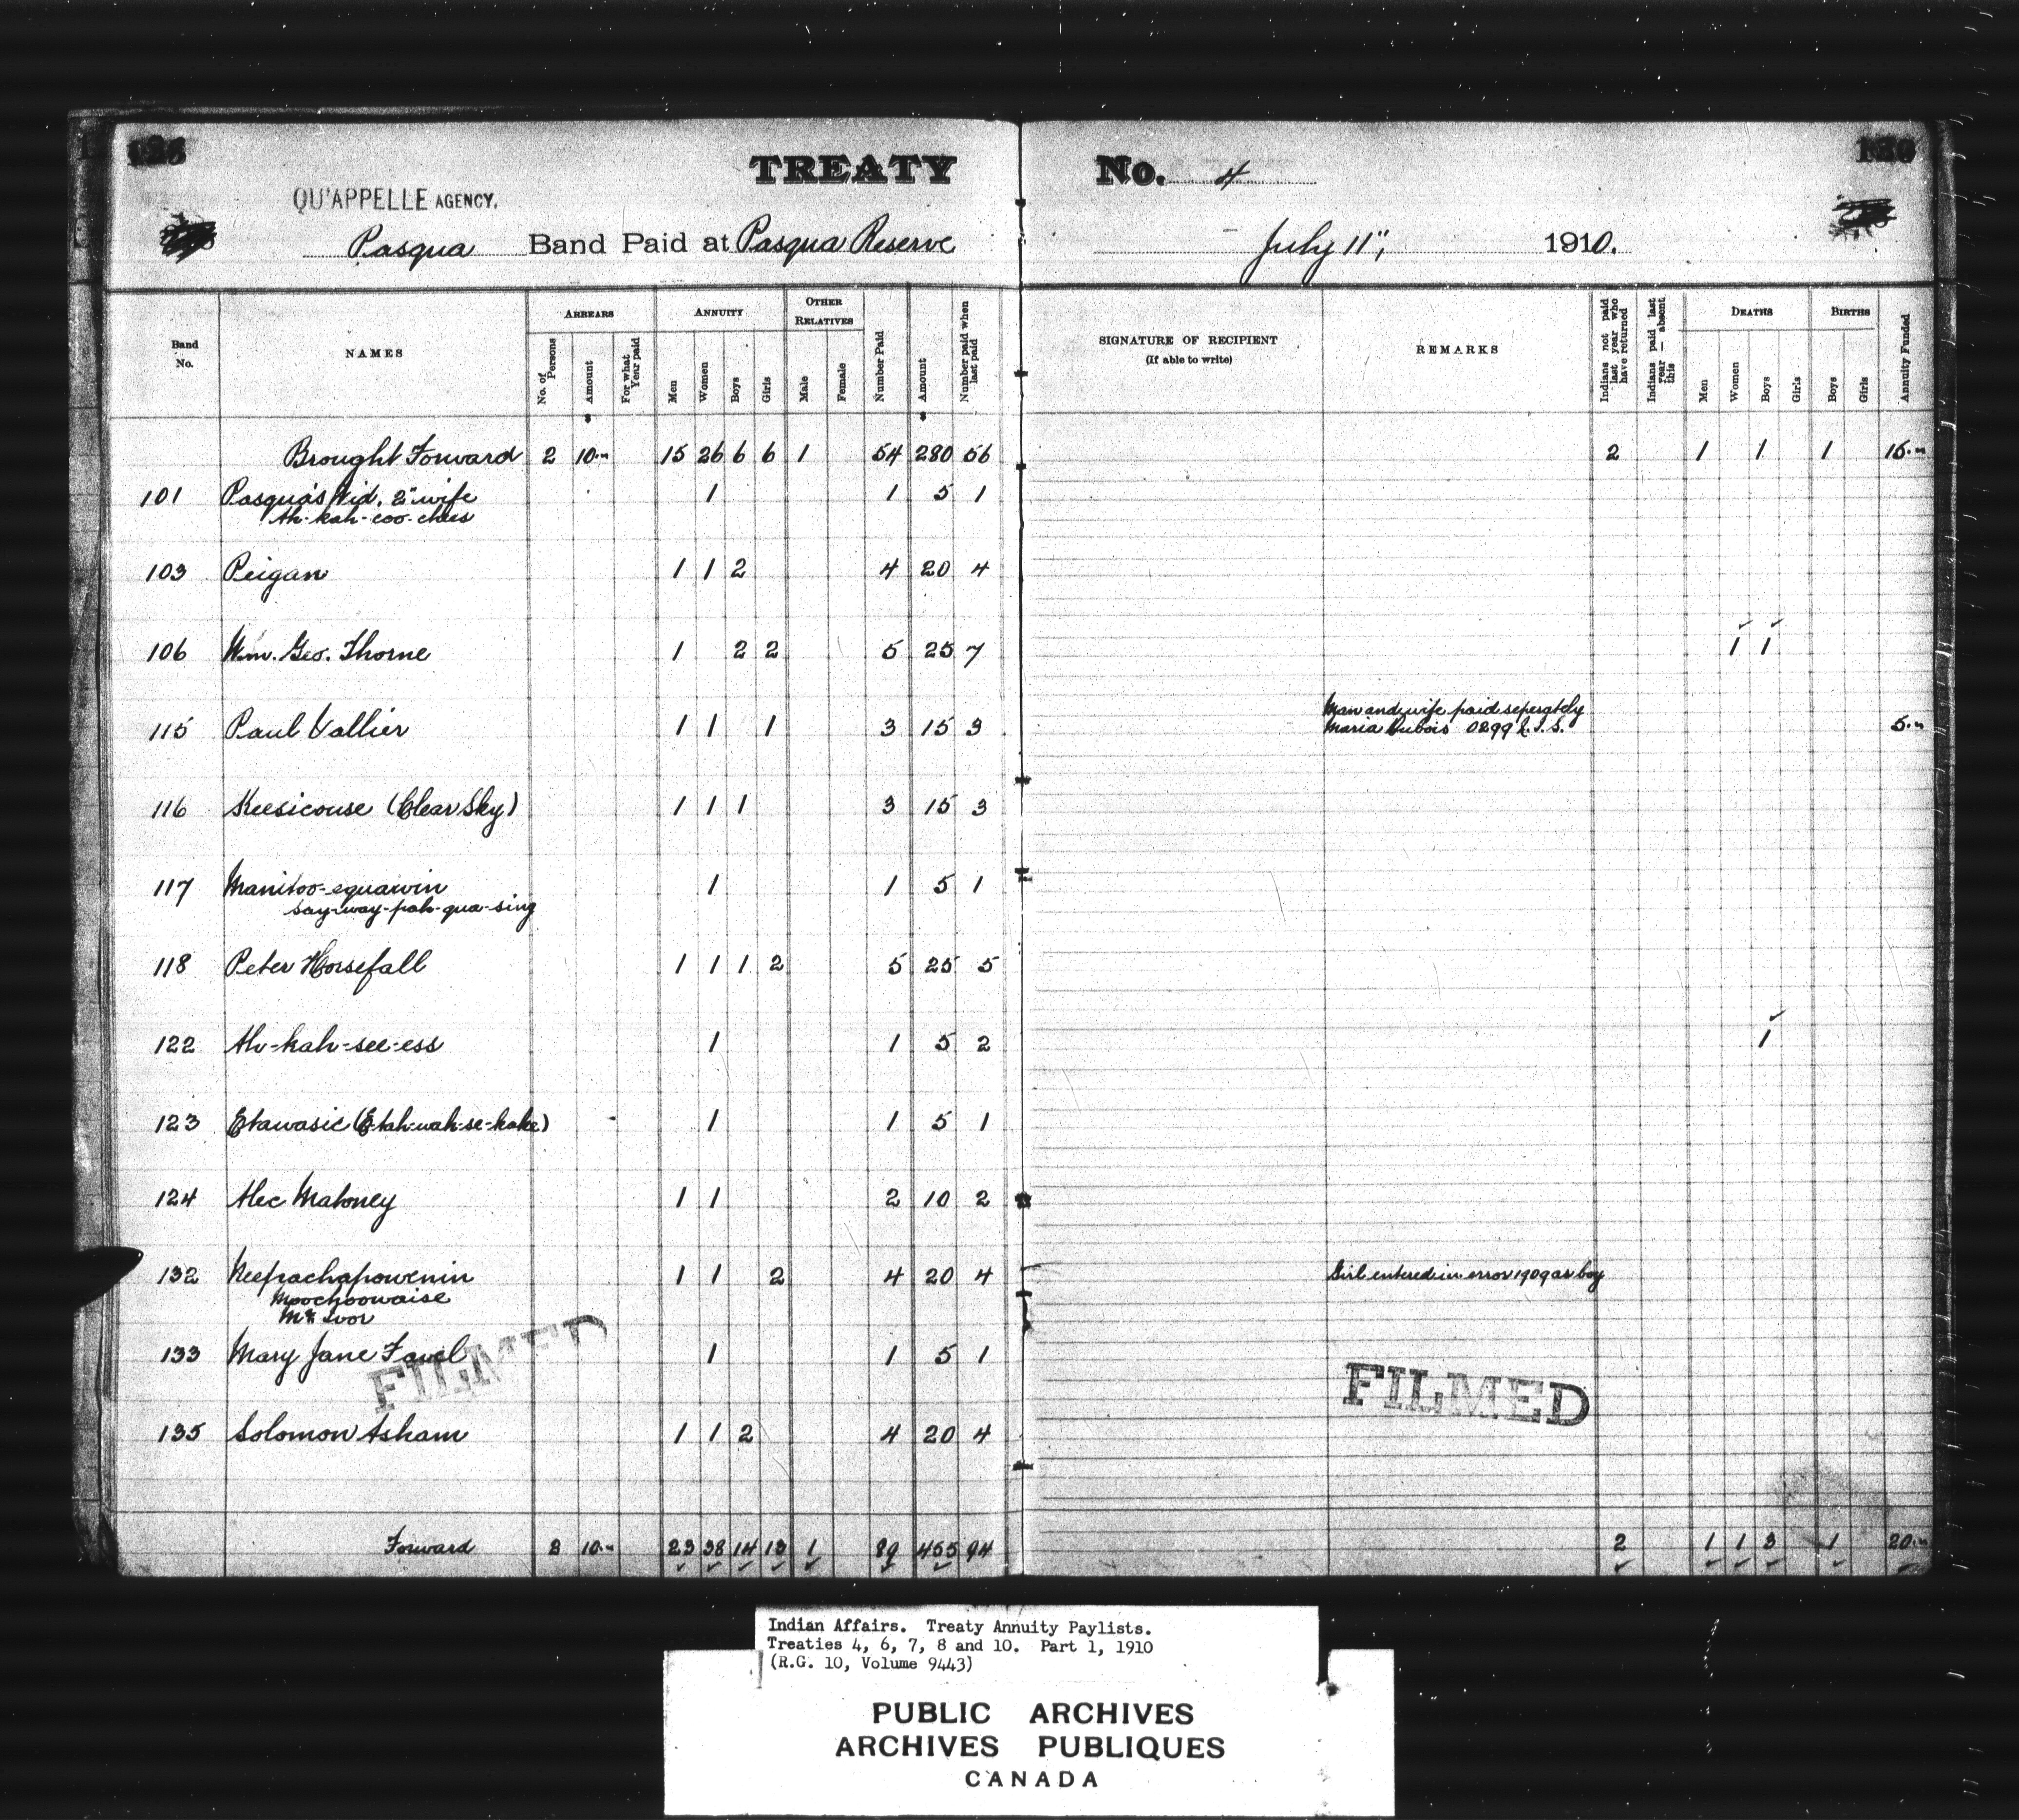 TREATY No. 4
QU'APPELLE AGENCY.
Pasqua Band Paid at Pasqua Reserve July 11", 1910.
Band No. NAMES ARREARS No. of Persons Amount For what Year paid ANNUITY Men Women Boys Girls OTHER RELATIVES Male Female Number Paid Amount Number paid when last paid SIGNATURE OF RECIPIENT (If able to write) REMARKS Indians not paid last year who have returned Indians paid last year — absent this DEATHS Men Women Boys Girls BIRTHS Boys Girls Annuity Funded
Brought Forward 2 10.00 15 26 6 6 1 54 280 56 2 1 1 1 15.00
101 Pasqua's Wid. 2" wife 1 1 5 1
Ah-kah-coo-chees
103 Peigan 1 1 2 4 20 4
106 Wm. Geo. Thorne 1 2 2 5 25 7 1 1
Man and wife paid seperately
115 Paul Vallier 1 1 1 3 15 3 Maria Dubois 0299 L.T.S. 5.00
116 Keesicouse (Clear Sky) 1 1 1 3 15 3
117 Manitoo-equawin 1 1 5 1
Say-way-pah-qua-sing
118 Peter Horsefall 1 1 1 2 5 25 5
122 Ah-kah-see-ess 1 1 5 2 1
123 Etawasic (E-tah-wah-se-kake) 1 1 5 1
124 Alec Mahoney 1 1 2 10 2
132 Neepachapowenin 1 1 2 4 20 4 Girl entered in error 1909 as boy
Moochoowaise
Mc Ivor
133 Mary Jane Favel 1 1 5 1
FILMED
FILMED
135 Solomon Asham 1 1 2 4 20 4
Forward 2 10.00 23 38 14 13 1 89 455 94 2 1 1 3 1 20.00
Indian Affairs. Treaty Annuity Paylists.
Treaties 4, 6, 7, 8 and 10. Part 1, 1910
(R.G. 10, Volume 9443)
PUBLIC ARCHIVES
ARCHIVES PUBLIQUES
CANADA